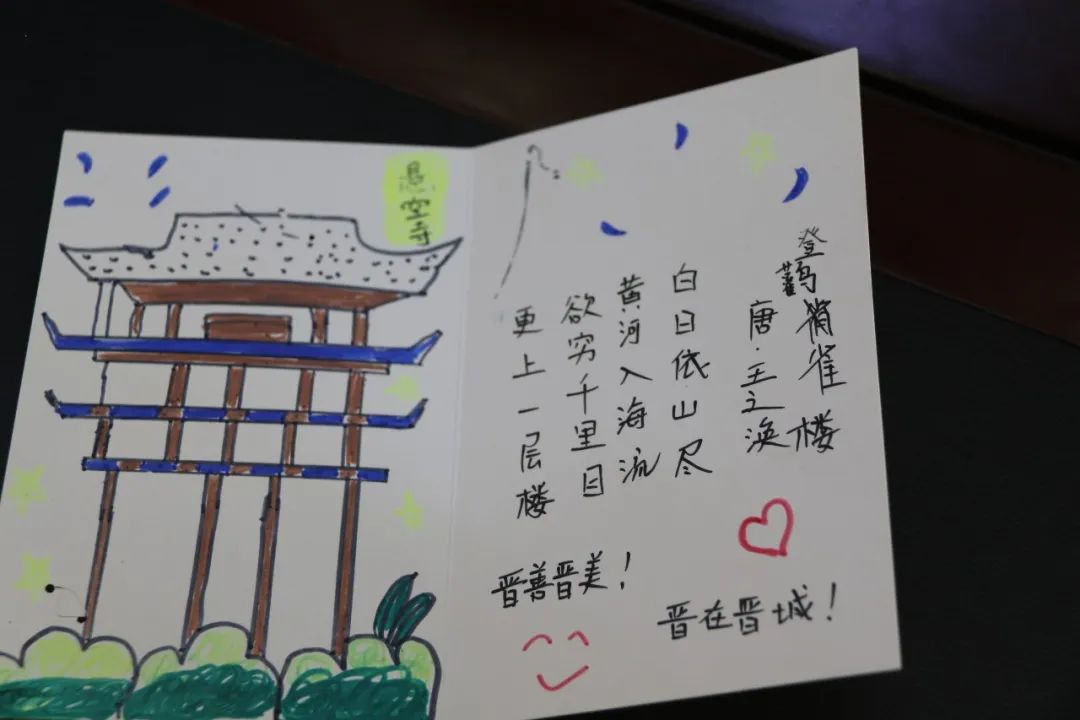 悬空寺
登鹳雀楼
唐·王之涣
白日依山尽
黄河入海流
欲穷千里目
更上一层楼
晋善晋美！
晋在晋城！